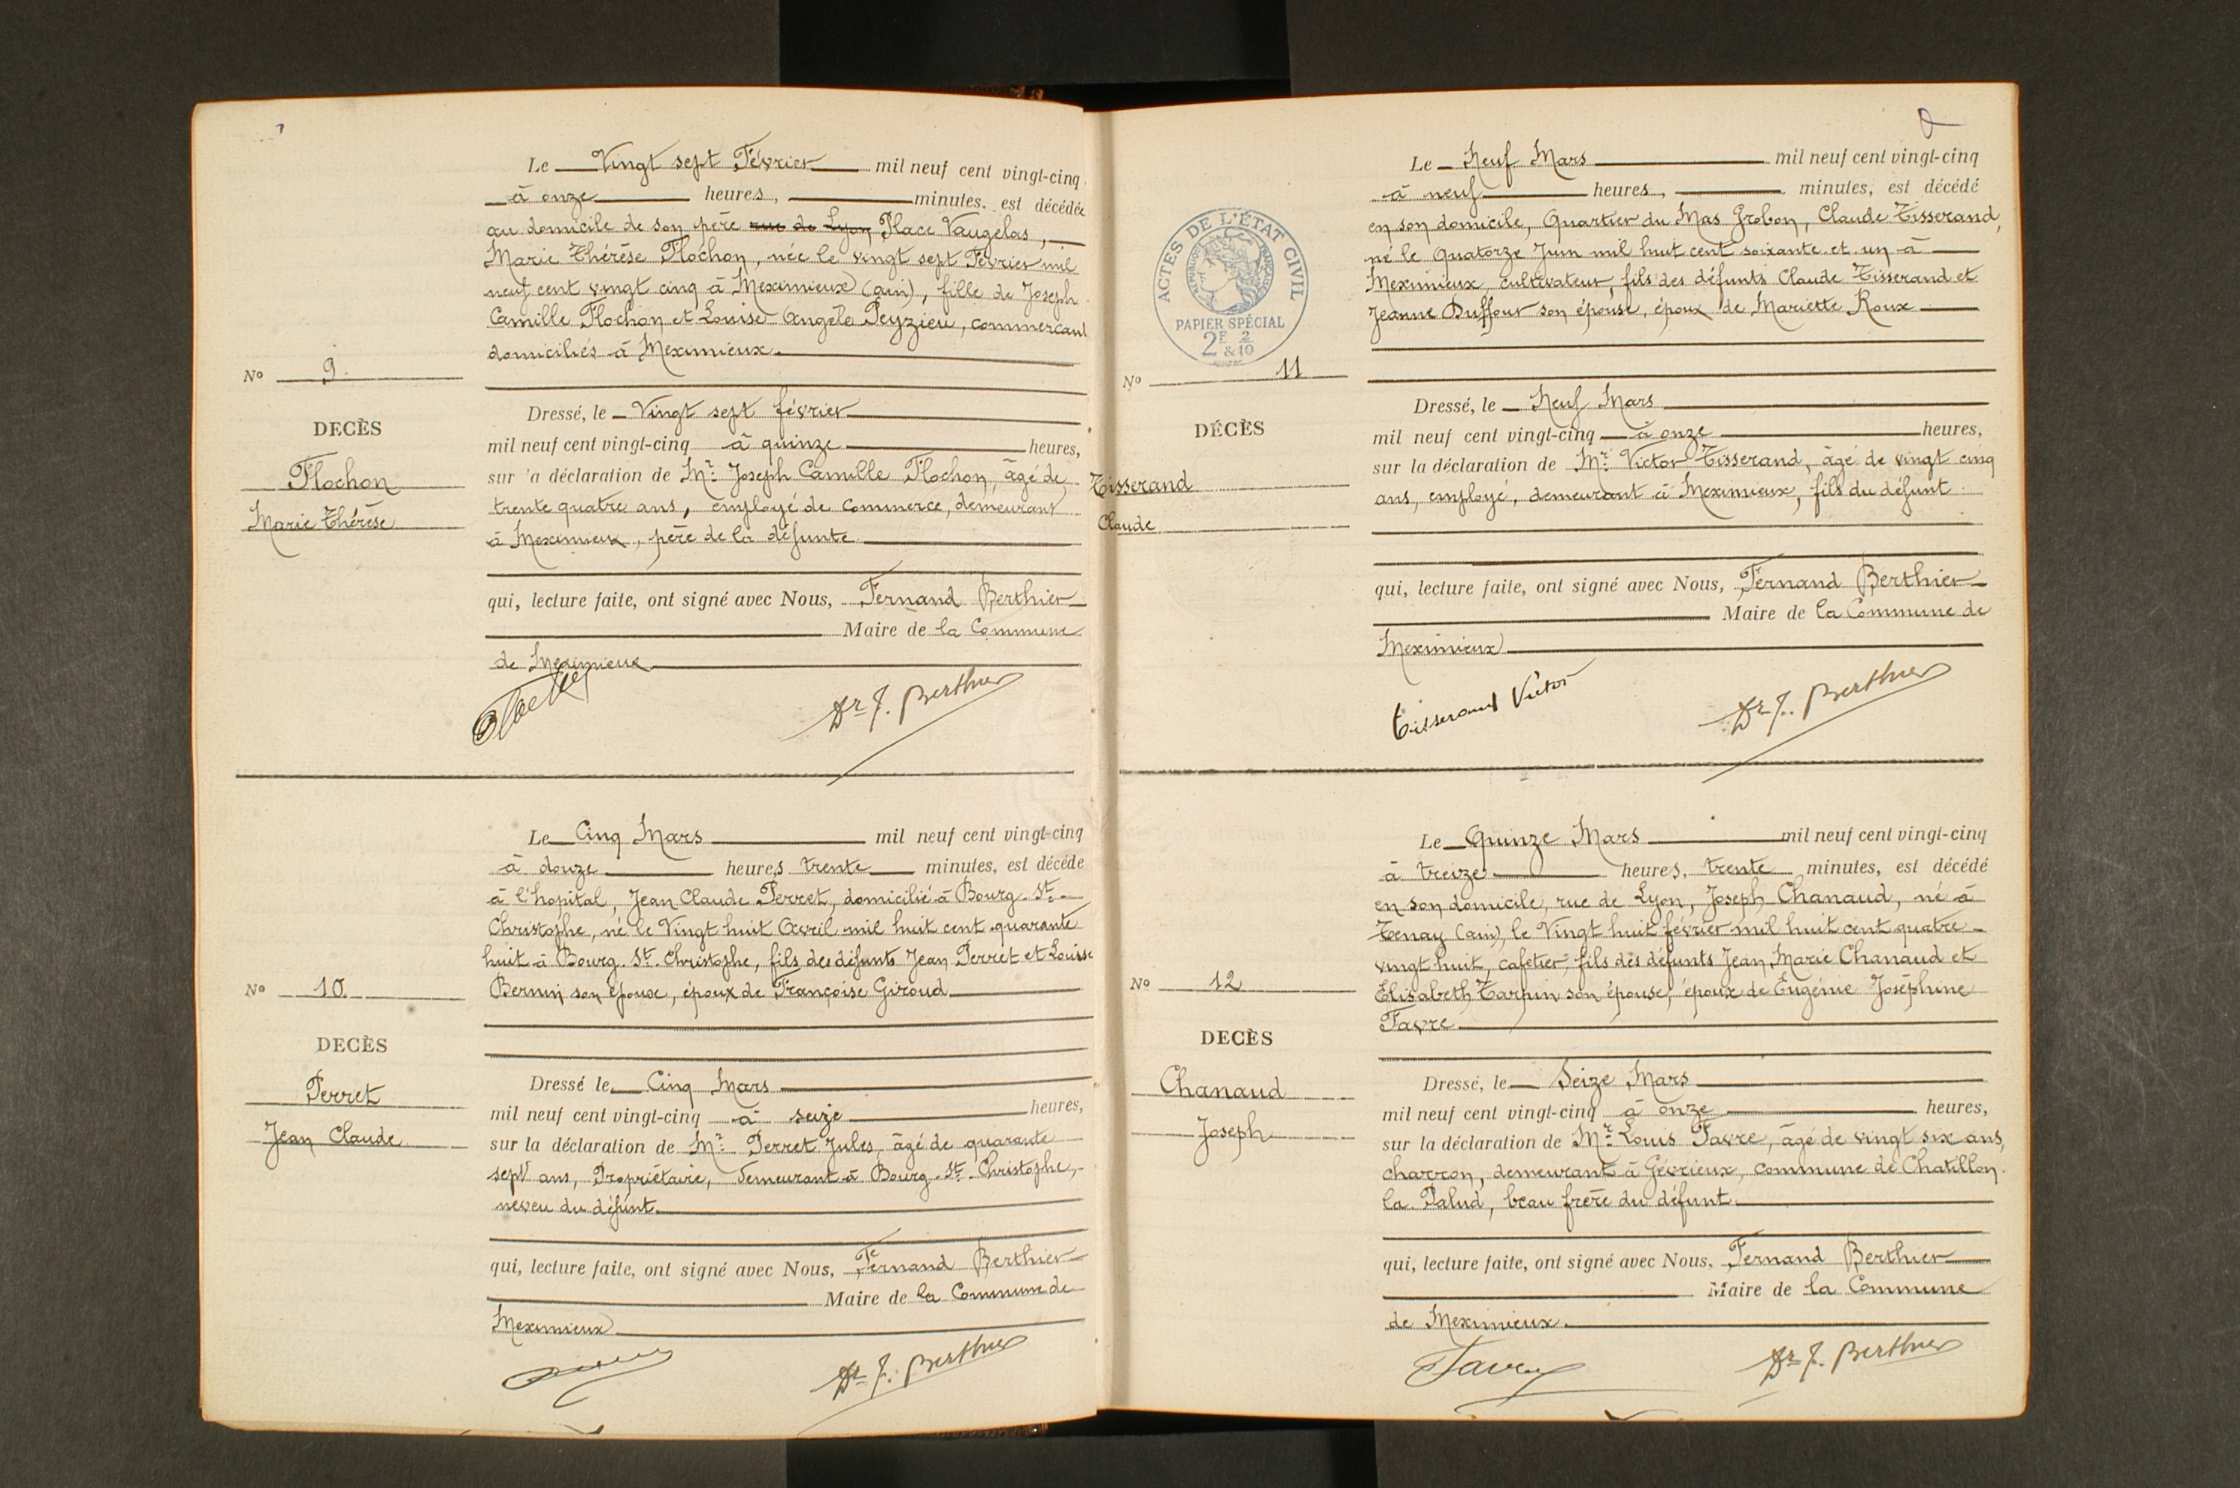 Le Vingt sept Février mil neuf cent vingt-cinq
à onze heures, minutes, est décédée
au domicile de son père rue de Lyon Place Vaugelas,
Marie Thérèse Flochon, née le vingt sept Février mil
neuf cent vingt cinq à Meximieux (ain), fille de Joseph
Camille Flochon et Louise Angèle Peyzieu, commercant
domiciliés à Meximieux.
No 9.
DECÈS
Flochon
Marie Thérèse
Dressé, le Vingt sept février
mil neuf cent vingt-cinq à quinze heures,
sur 'a déclaration de Mr. Joseph Camille Flochon, âgé de
trente quatre ans, employé de commerce, demeurant
à Meximieux, père de la défunte
qui, lecture faite, ont signé avec Nous, Fernand Berthier
Maire de la Commune
de Meximieux
Dr F. Berthier
Le Cinq Mars mil neuf cent vingt-cinq
à douze heures trente minutes, est décédé
à l'hopital, Jean Claude Perret, domicilié à Bourg-St-
Christophe, né le Vingt huit Avril mil huit cent quarante
huit à Bourg-St-Christophe, fils des défunts Jean Perret et Louise
Bernin son épouse, époux de Françoise Giroud
No 10
DECÈS
Perret
Jean Claude
Dressé le Cinq Mars
mil neuf cent vingt-cinq à seize heures,
sur la déclaration de Mr. Perret Jules, âgé de quarante
sept ans, Propriétaire, demeurant à Bourg-St-Christophe,
neveu du défunt.
qui, lecture faite, ont signé avec Nous, Fernand Berthier
Maire de la Commune de
Meximieux
Dr F. Berthier
Le Neuf Mars mil neuf cent vingt-cinq
à neuf heures, minutes, est décédé
en son domicile, Quartier du Mas Grobon, Claude Tisserand,
né le Quatorze Juin mil huit cent soixante et un à
Meximieux, cultivateur, fils des défunts Claude Tisserand et
Jeanne Duffour son épouse, époux de Mariette Roux
ACTES DE L'ÉTAT CIVIL
PAPIER SPÉCIAL
2E 2
& 10
No 11
DÉCÈS
Tisserand
Claude
Dressé, le Neuf Mars
mil neuf cent vingt-cinq à onze heures,
sur la déclaration de Mr. Victor Tisserand, âgé de vingt cinq
ans, employé, demeurant à Meximieux, fils du défunt
qui, lecture faite, ont signé avec Nous, Fernand Berthier
Maire de la Commune de
Meximieux
Tisserand Victor
Dr F. Berthier
Le Quinze Mars mil neuf cent vingt-cinq
à treize heures, trente minutes, est décédé
en son domicile, rue de Lyon, Joseph Chanaud, né à
Tenay (ain), le Vingt huit février mil huit cent quatre-
vingt huit, cafetier, fils des défunts Jean Marie Chanaud et
Elisabeth Tarpin son épouse, époux de Eugénie Joséphine
Favre
No 12
DECÈS
Chanaud
Joseph
Dressé, le Seize Mars
mil neuf cent vingt-cinq à onze heures,
sur la déclaration de Mr. Louis Favre, âgé de vingt six ans,
charron, demeurant à Gévrieux, commune de Chatillon
la Palud, beau frère du défunt
qui, lecture faite, ont signé avec Nous, Fernand Berthier
Maire de la Commune
de Meximieux.
Favre
Dr F. Berthier